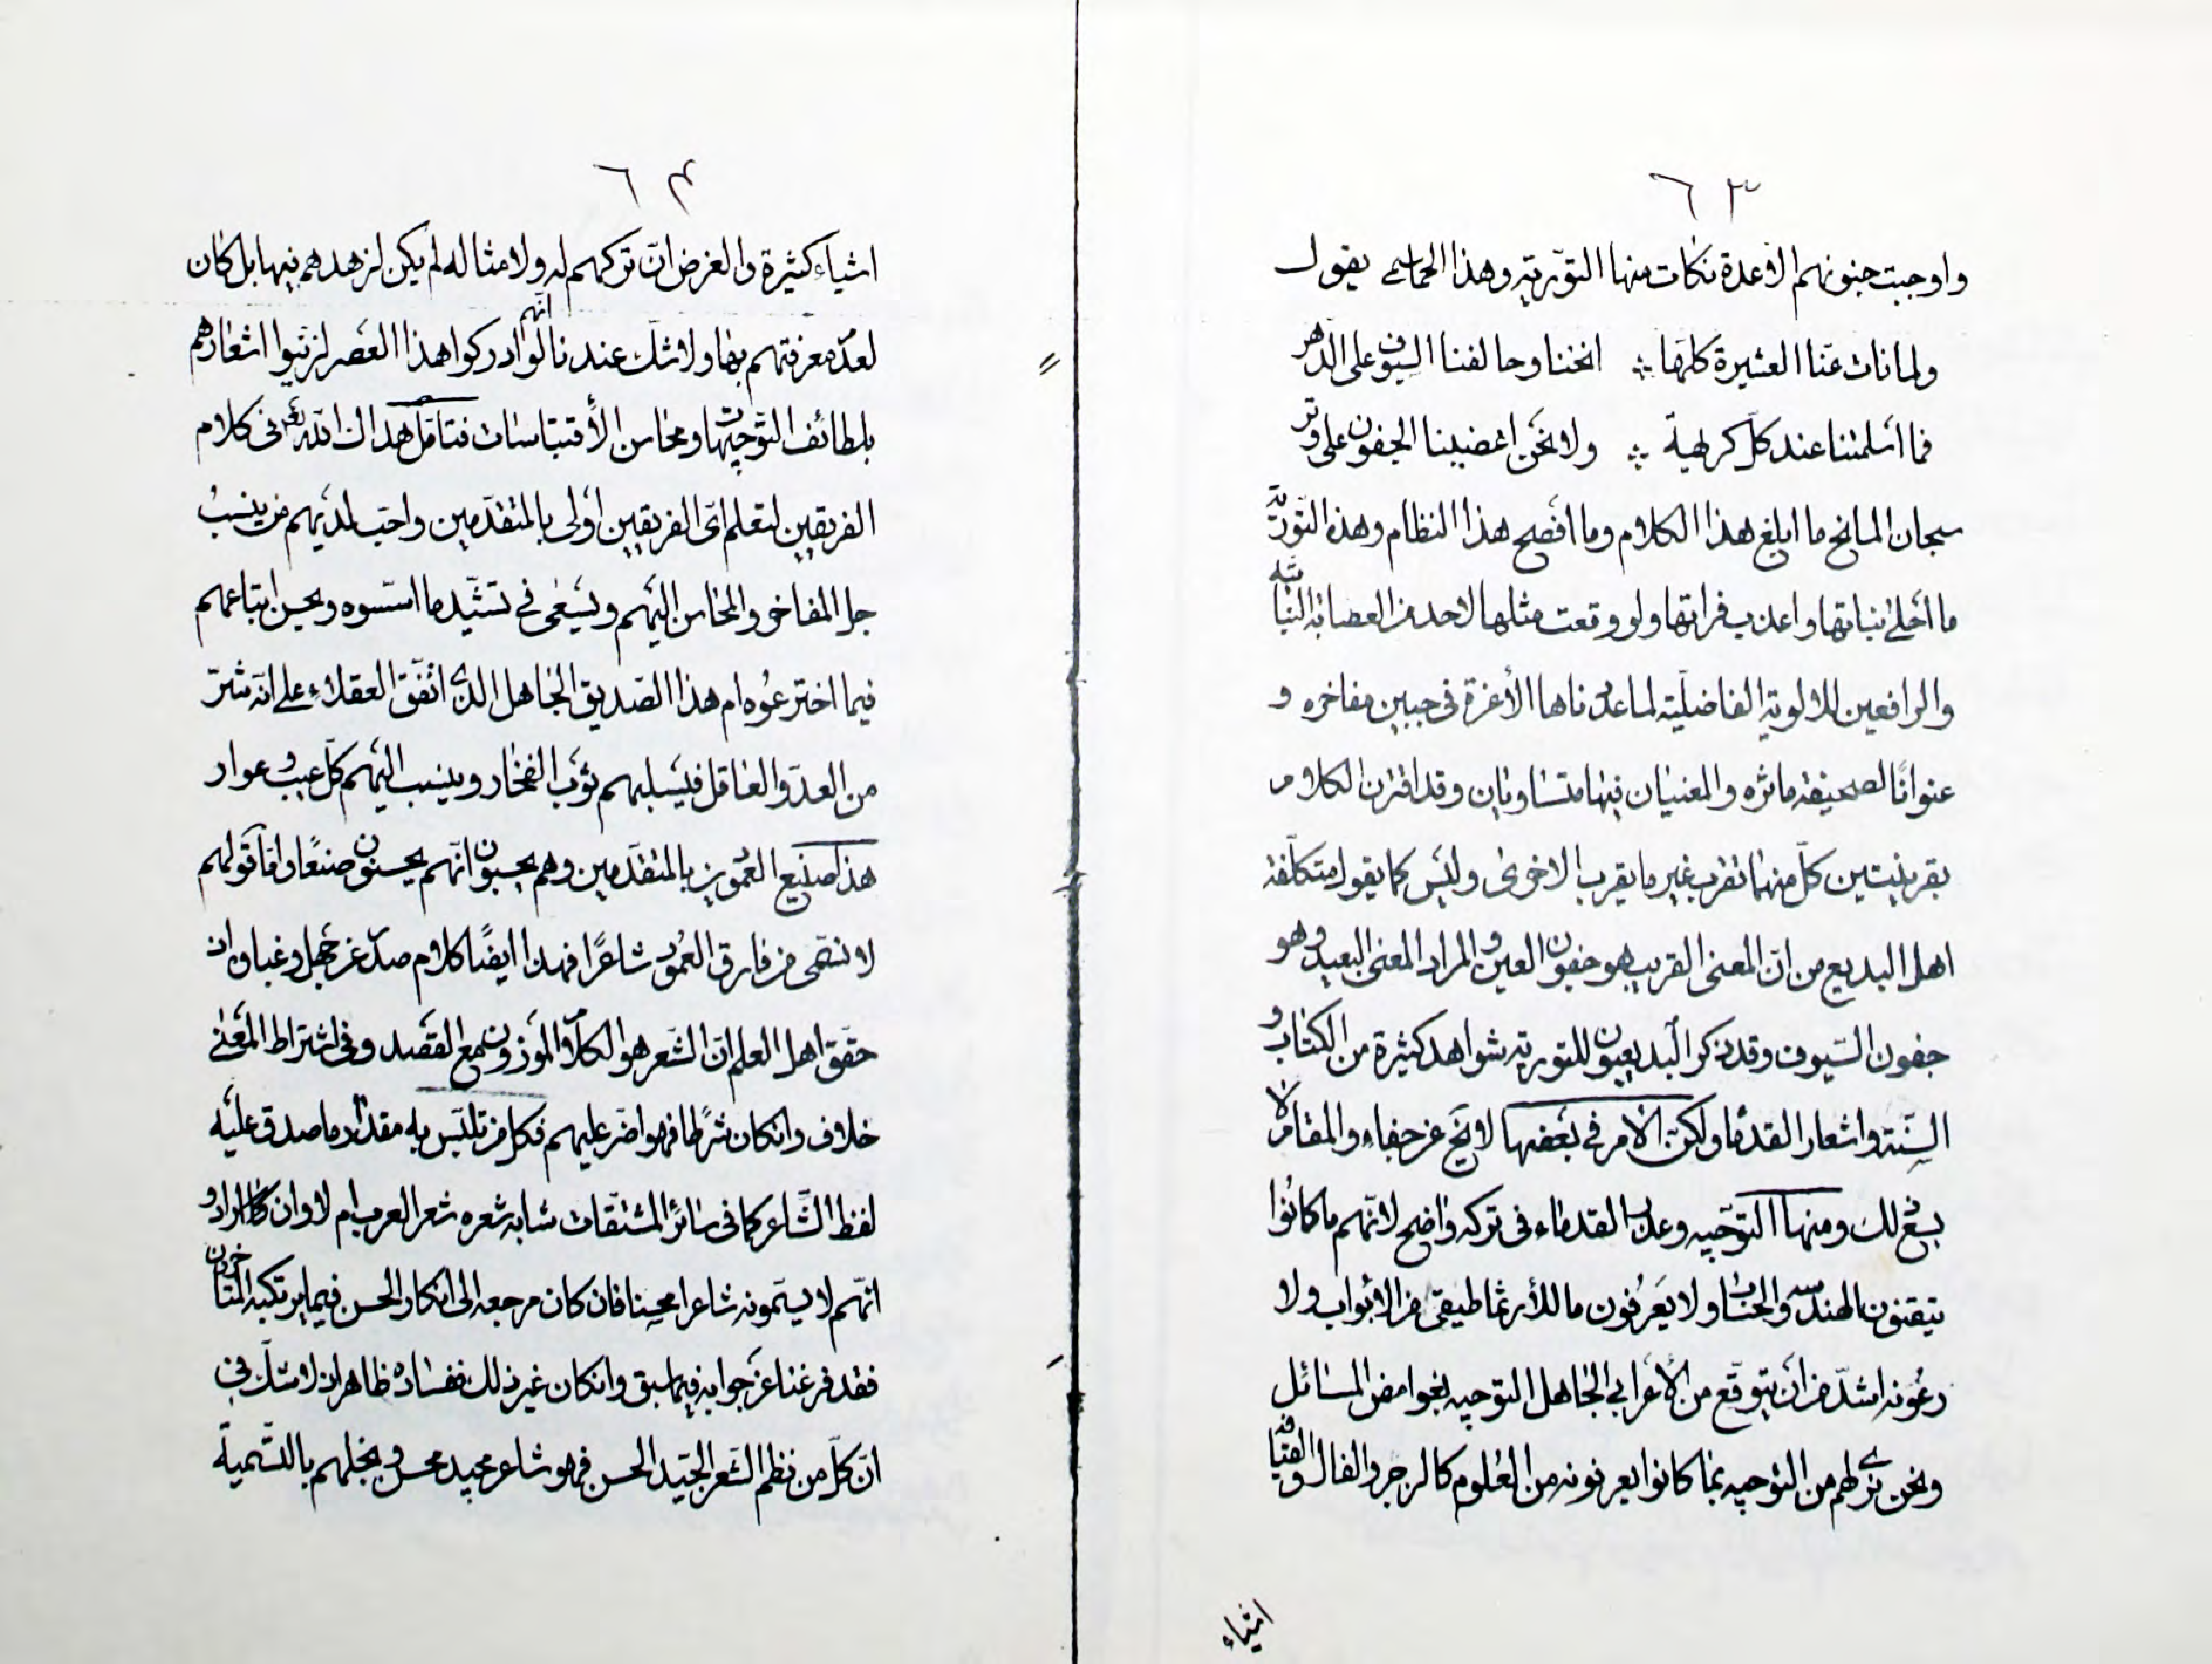 ٦٣
واوجبت جنونهم الا عدة نكات منها التّورية وهذا الحماسي يقول
ولما نات عنّا العشيرة كلّها ؞ انخنا وحالفنا السيوف على الدهر
فما اسلمتنا عند كلّ كريهة ؞ ولا نحن اغضينا الجفون على وتر
سبحان المانح ما ابلغ هذا الكلام وما افصح هذا النظام وهذه التورية
ما احلى نباتها واعذب فراتها ولو وقعت مثلها لاحد من العصابة النباتية
والرافعين للالوية الفاضليّة لما عدّناها الا غرة في جبين مفاخره و
عنوانًا لصحيفة مآثره والمعنيان فيها متساويان وقد اقترن الكلام
بقرينتين كلّ منهما تقرب غير ما يقرب الاخرى وليس كما يقول متكلّفة
اهل البديع من انّ المعنى القريب هو جفون العين والمراد المعنى البعيد وهو
جفون السّيوف وقد ذكر البديعيون للتورية شواهد كثيرة من الكتاب و
السّنة واشعار القدماء ولكن الامر في بعضها لا يخ عن خفاء والمقام لا
يسع ذلك ومنها التوجيه وعذر القدماء في تركه واضح لانّهم ما كانوا
يتقنون الهندسه والحساب ولا يعرفون ما للأرثماطيقي من الابواب ولا
رعونه اشدّ من ان يتوقّع من الأعرابي الجاهل التوجيه بغوامض المسائل
ونحن نرى لهم من التوجيه بما كانوا يعرفونه من العلوم كالزجر والفال والقيافة
اشياء
٦٤
اشياء كثيرة والغرض انّ تركهم له ولامثاله لم يكن لزهدهم فيها بل كان
لعدم معرفتهم بها ولا شك عندنا انّهم لو ادركوا هذا العصر لزيّنوا اشعارهم
بلطائف التّوجيهات ومحاسن الأقتباسات فتامّل هداك اللّه تعالى في كلام
الفريقين لتعلم ايّ الفريقين اولى بالمتقدّمين واحبّ لديهم من ينسب
جل المفاخر والمحاسن اليهم ويسعى في تشيّيد ما اسّسوه ويحسن اتباعهم
فيما اخترعوه ام هذا الصّديق الجاهل الذي اتّفق العقلاء على انّه شرّ
من العدوّ العاقل فيسلبهم ثوب الفخار وينسب اليهم كلّ عيب وعوار
هذا صنيع العموديين بالمتقدّمين وهم يحسبون انّهم يحسنون صنعًا وامّا قولهم
لا نسمّى من فارق العمود شاعرًا فهذا ايضًا كلام صدر عن جهل وغباوة اذ
حقّق اهل العلم انّ الشّعر هو الكلام الموزون مع القصد وفي اشتراط المعنى
خلاف وان كان شرطًا فهو اضرّ عليهم فكل من تلبّس به مقدار ما صدق عليه
لفظ الشّاعر كما في سائر المشتقات شابه شعره شعر العرب ام لا وان كان ارادوا
انّهم لا يسمّونه شاعرا محسنا فان كان مرجعه الى انكار الحسن فيما يرتكبه المتاخرون
فقد فرغنا عن جوابه فيما سبق وان كان غير ذلك ففساده ظاهر اذ لا شكّ في
انّ كلّ من نظم الشّعر الجيّد الحسن فهو شاعر مجيد محسن وبخلهم بالتّسمية